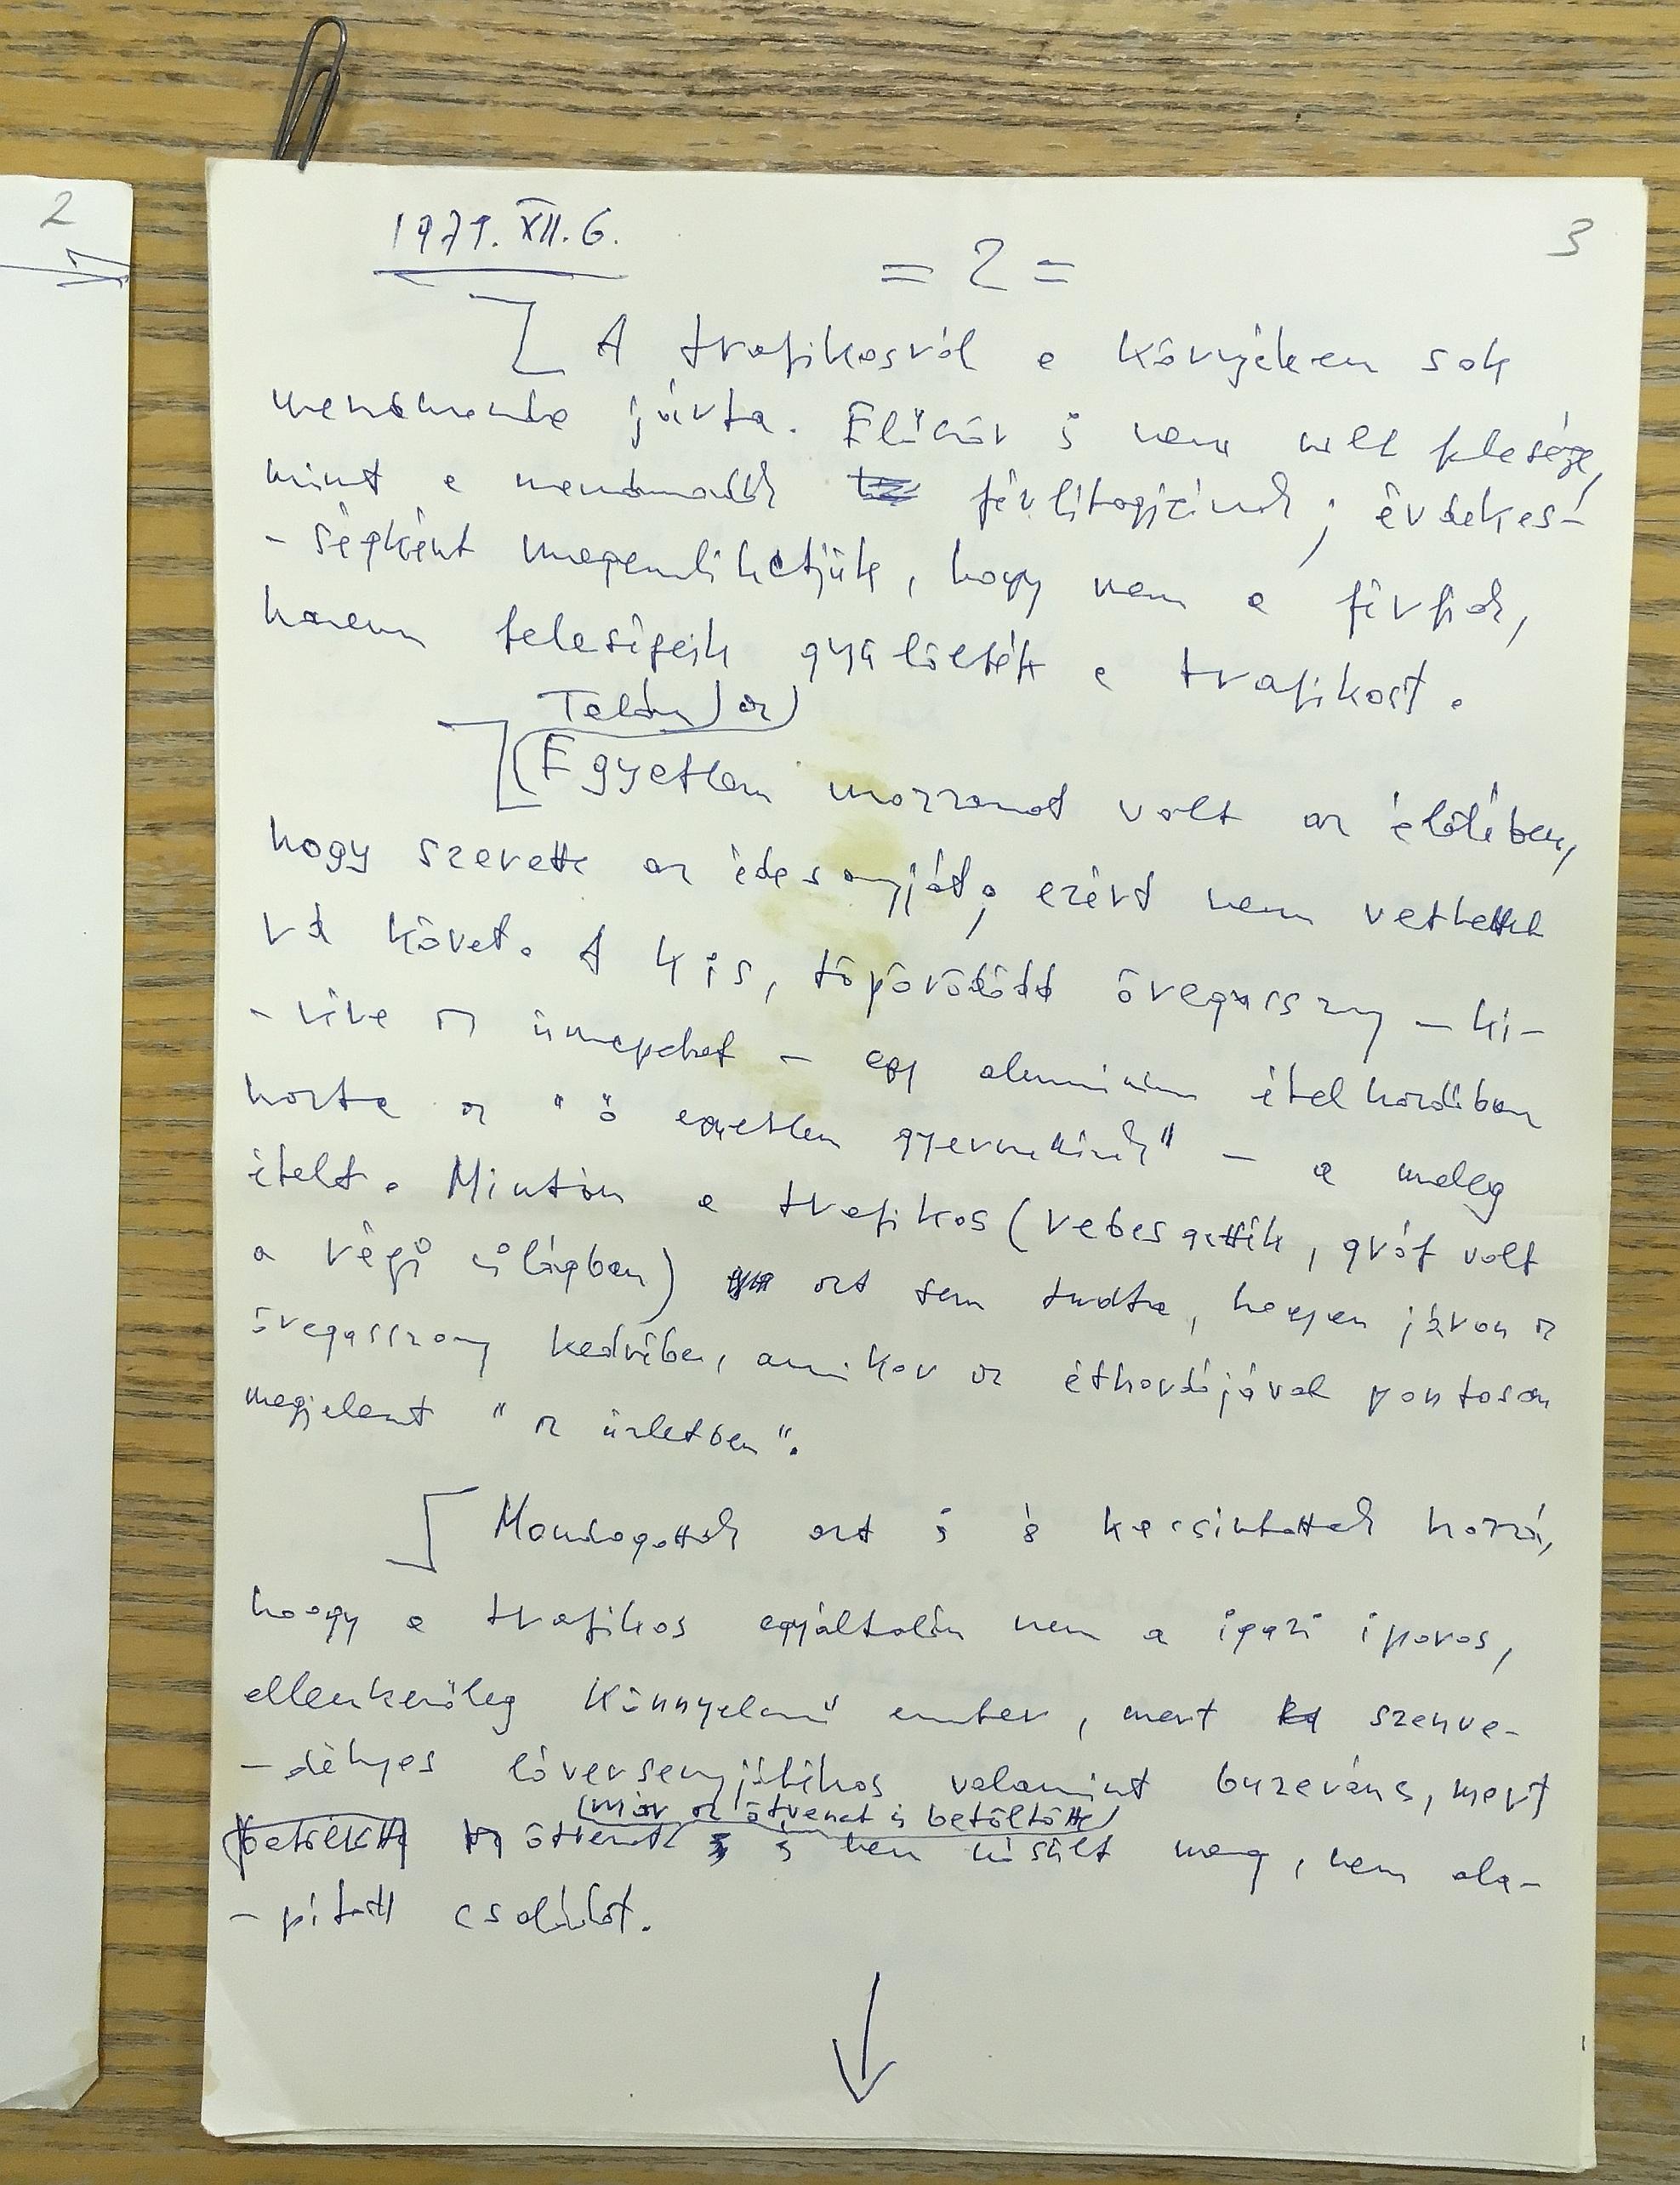 2
1979. XII. 6.
= 2 =
3
A trafikosról a környéken sok
mendemonda járta. Először is nem volt felesége,
mint a mendemondák férfitagjainak; érdekes-
-ségként megemlíthetjük, hogy nem a férfiak,
hanem feleségeik gyűlölték a trafikost.
Talán az
Egyetlen mozzanat volt az életében,
hogy szerette az édesanyját; ezért nem vethettek
rá követ. A kis, töpörödött öregasszony – ki-
-véve az ünnepeket – egy aluminium ételhordóban
hozta az "ő egyetlen gyermekének" – a meleg
ételt. Miután a trafikos (rebesgették, gróf volt
a régi világban) azt sem tudta, hogyan járjon az
öregasszony kedvében, amikor az éthordójával pontosan
megjelent "az üzletben".
Mondogatták azt is kacsintottak hozzá,
hogy a trafikos egyáltalán nem a igazi iparos,
ellenkezőleg könnyelmű ember, mert szenve-
-délyes lóversenyjátékos valamint buzeráns, mert
(már az ötvenet is betöltötte)
ötvenet is nem nősült meg, nem ala-
-pított családot.